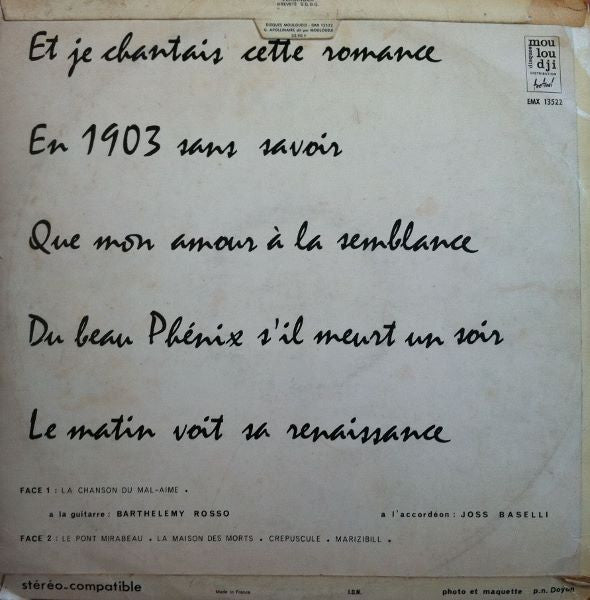 BREVETÉ S.G.D.G.
DISQUES MOULOUDJI - EMX 13522
G. APOLLINAIRE dit par MOULOUDJI
Et je chantais cette romance
mou
lou
dji
disques
DISTRIBUTION
festival
EMX 13522
En 1903 sans savoir
Que mon amour à la semblance
Du beau Phénix s'il meurt un soir
Le matin voit sa renaissance
FACE 1 : LA CHANSON DU MAL-AIME .
a la guitarre : BARTHELEMY ROSSO
a l'accordéon : JOSS BASELLI
FACE 2 : LE PONT MIRABEAU . LA MAISON DES MORTS . CREPUSCULE . MARIZIBILL .
stéréo-compatible
Made in France
photo et maquette p.n. Doyen